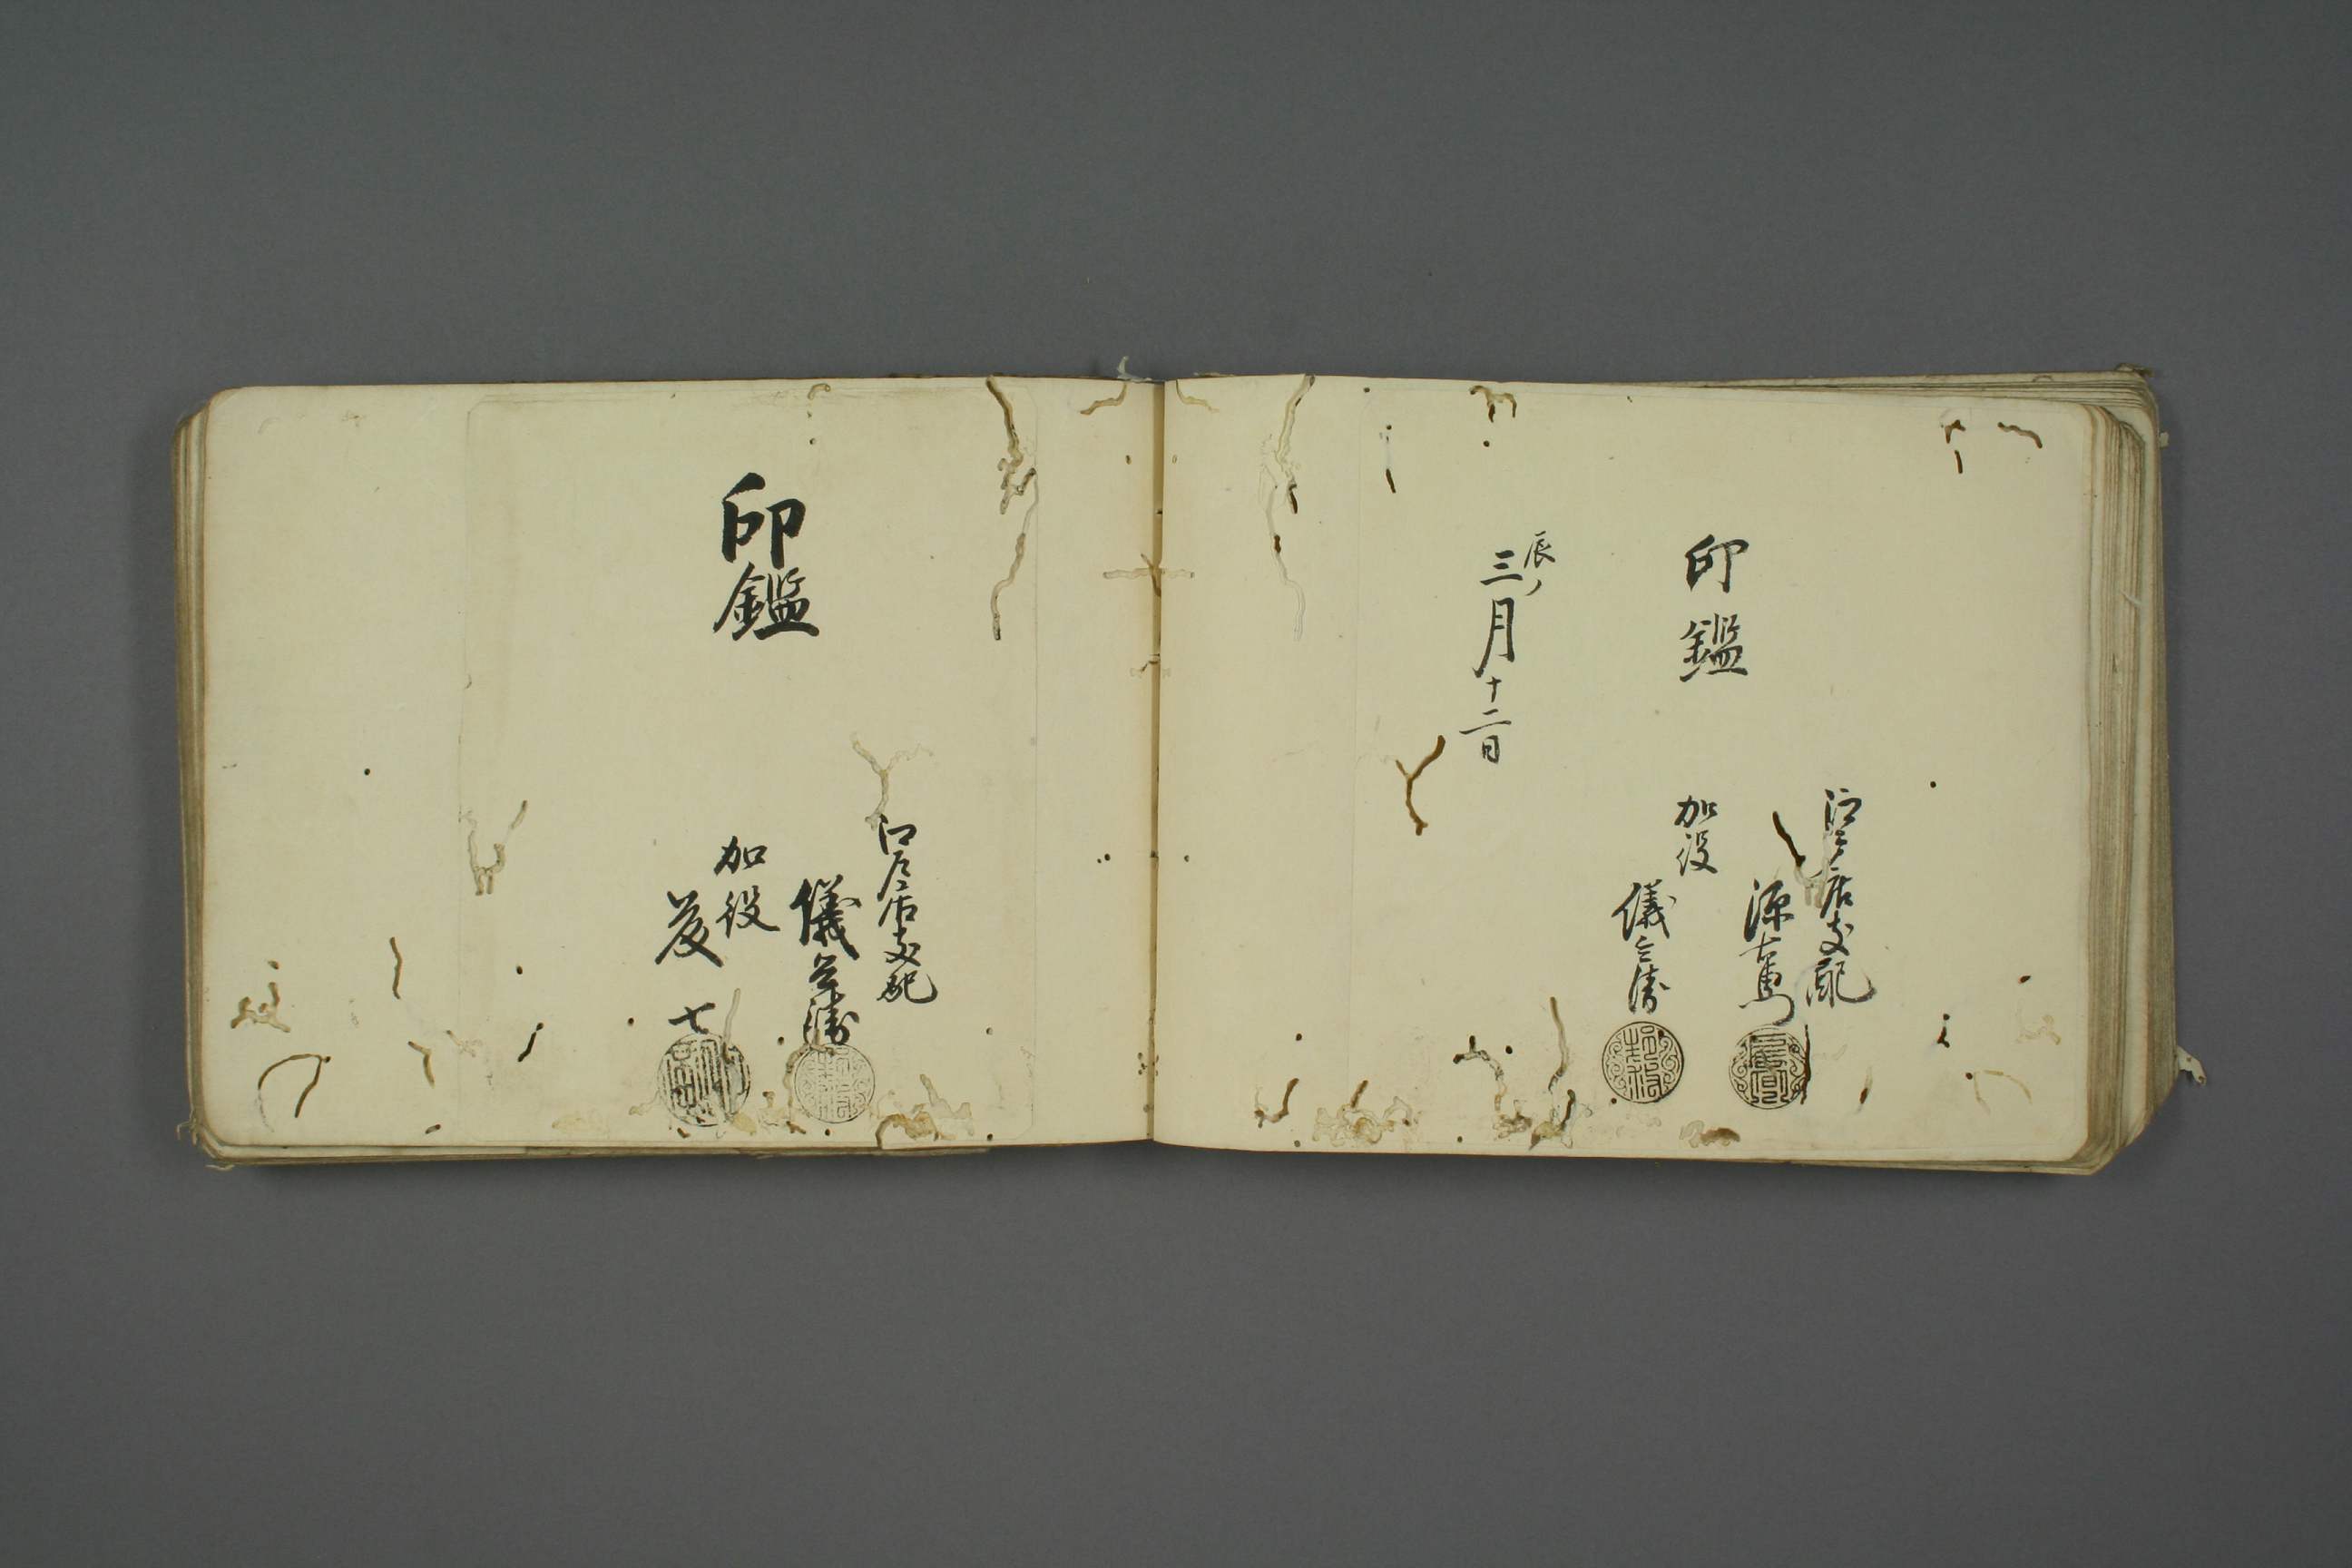 印鑑
江戸店支配
源右衛門
加役
儀兵衛
辰ノ
三月十二日
印鑑
江戸店支配
儀兵衛
加役
彦七